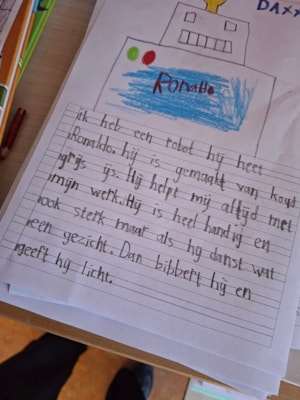 DAXX
Ronaldo
ik heb een robot hij heet
Ronaldo. hij is gemaakt van koud
grijs ijs. Hij helpt mij altijd met
mijn werk. Hij is heel handig en
ook sterk maar als hij danst wat
een gezicht. Dan bibbert hij en
geeft hij licht.